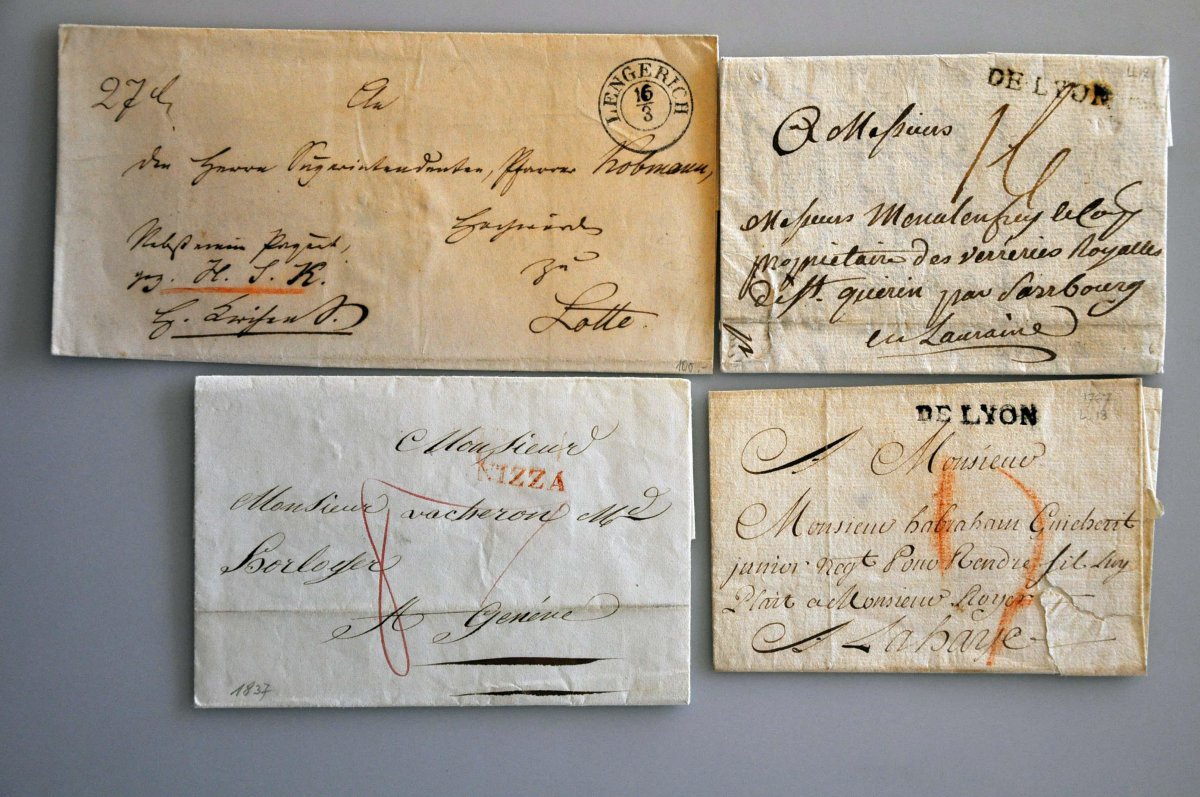 An
LENGERICH
16/3
den Herrn Superintendenten, Pfarrer Kobmann,
Hochwürden
Nebst einem Paquet,
gez. H. S. K.
zu
Lotte.
100.-
DE LYON
A Messieurs
Messieurs
propriétaire des verreries Royalles
de St. quirin par Sarrbourg
en Lauraine
Monsieur
NIZZA
Monsieur vacheron Md
Horloger
A Genéve
1837
DE LYON
A Monsieur
Monsieur habraham Guibert
junior Negt Pour Rendre sil luy
Plait a Monsieur Royer
A Lahaye